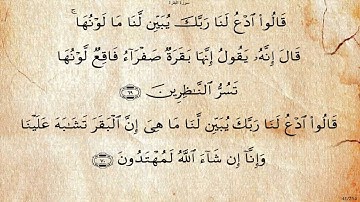 سورة البقرة
قَالُوا۟ ٱدْعُ لَنَا رَبَّكَ يُبَيِّن لَّنَا مَا لَوْنُهَا ۚ
قَالَ إِنَّهُۥ يَقُولُ إِنَّهَا بَقَرَةٌ صَفْرَآءُ فَاقِعٌ لَّوْنُهَا
تَسُرُّ ٱلنَّـٰظِرِينَ ٦٩
قَالُوا۟ ٱدْعُ لَنَا رَبَّكَ يُبَيِّن لَّنَا مَا هِىَ إِنَّ ٱلْبَقَرَ تَشَـٰبَهَ عَلَيْنَا
وَإِنَّآ إِن شَآءَ ٱللَّهُ لَمُهْتَدُونَ ٧٠